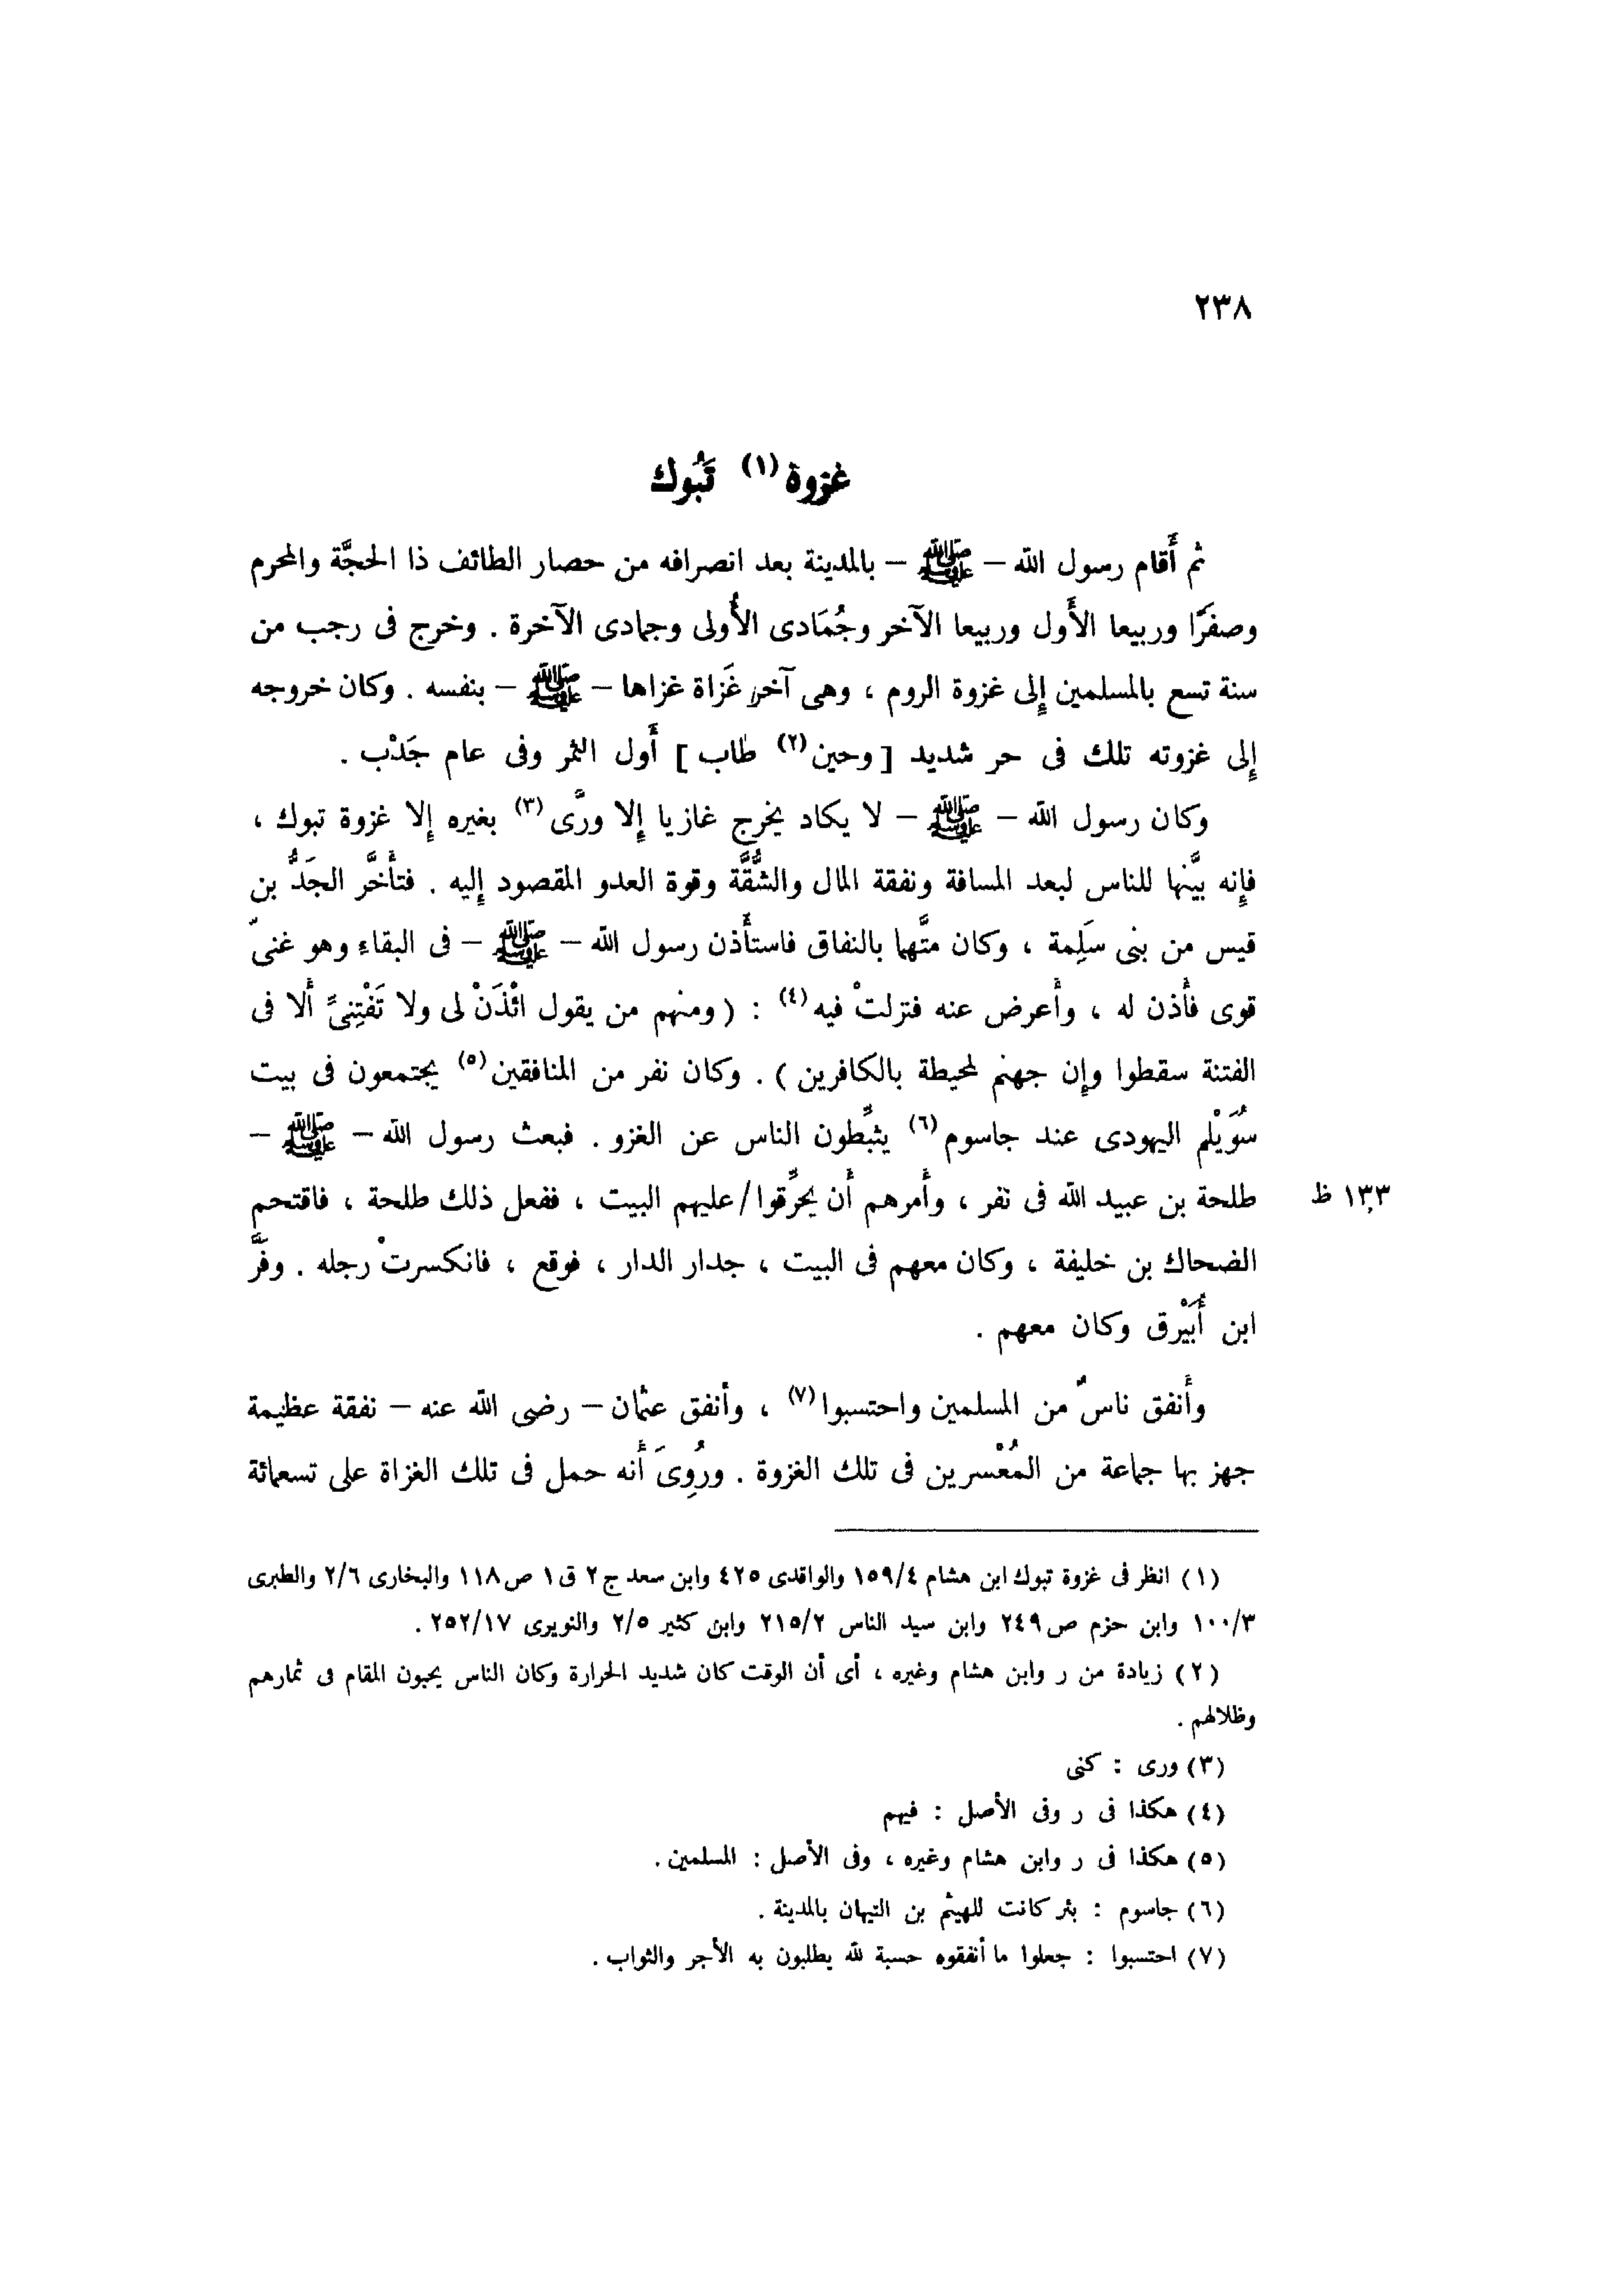 ٢٣٨
غزوة (١) تَبُوك
ثم أَقام رسول الله – ﷺ – بالمدينة بعد انصرافه من حصار الطائف ذا الحجَّة والمحرم
وصفَرًا وربيعا الأَول وربيعا الآخر وجُمَادى الأُولى وجمادى الآخرة . وخرج فى رجب من
سنة تسع بالمسلمين إِلى غزوة الروم ، وهى آخر غَزاة غزاها – ﷺ – بنفسه . وكان خروجه
إِلى غزوته تلك فى حر شديد [ وحين (٢) طاب ] أَول الثمر وفى عام جَدْب .
وكان رسول الله – ﷺ – لا يكاد يخرج غازيا إِلا ورَّى (٣) بغيره إِلا غزوة تبوك ،
فإِنه بيَّنها للناس لبعد المسافة ونفقة المال والشُّقَّة وقوة العدو المقصود إِليه . فتأَخَّر الجَدُّ بن
قيس من بنى سَلِمة ، وكان متَّهما بالنفاق فاستأَذن رسول الله – ﷺ – فى البقاء وهو غنىّ
قوى فأَذن له ، وأَعرض عنه فنزلتْ فيه (٤) : ( ومنهم من يقول ائْذَنْ لى ولا تَفْتِنىِّ أَلا فى
الفتنة سقطوا وإِن جهنم لمحيطة بالكافرين ) . وكان نفر من المنافقين (٥) يجتمعون فى بيت
سُوَيْلم اليهودى عند جاسوم (٦) يثبِّطون الناس عن الغزو . فبعث رسول الله – ﷺ –
طلحة بن عبيد الله فى نفر ، وأَمرهم أَن يحرِّقوا/عليهم البيت ، ففعل ذلك طلحة ، فاقتحم
١٣٣ ظ
الضحاك بن خليفة ، وكان معهم فى البيت ، جدار الدار ، فوقع ، فانكسرتْ رجله . وفَرَّ
ابن أُبَيْرق وكان معهم .
وأَنفق ناسٌ من المسلمين واحتسبوا (٧) ، وأنفق عثمان – رضى الله عنه – نفقة عظيمة
جهز بها جماعة من المُعْسرين فى تلك الغزوة . ورُوِىَ أَنه حمل فى تلك الغزاة على تسعمائة
(١) انظر فى غزوة تبوك ابن هشام ١٥٩/٤ والواقدى ٤٢٥ وابن سعد ج٢ ق١ ص١١٨ والبخارى ٢/٦ والطبرى
١٠٠/٣ وابن حزم ص٢٤٩ وابن سيد الناس ٢١٥/٢ وابن كثير ٢/٥ والنويرى ٢٥٢/١٧ .
(٢) زيادة من ر وابن هشام وغيره ، أى أن الوقت كان شديد الحرارة وكان الناس يحبون المقام فى ثمارهم
وظلالهم .
(٣) ورى : كنى
(٤) هكذا فى ر وفى الأصل : فيهم
(٥) هكذا فى ر وابن هشام وغيره ، وفى الأصل : المسلمين .
(٦) جاسوم : بئر كانت للهيثم بن التيهان بالمدينة .
(٧) احتسبوا : جعلوا ما أنفقوه حسبة لله يطلبون به الأجر والثواب .